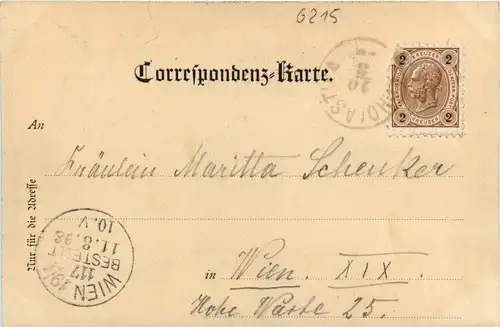 6215
Correspondenz-Karte.
2 2
KREUZER
2 2
An
Fräulein Maritta Schenker
Nur für die Adresse
in Wien. XIX.
Hohe Warte 25.
WIEN 19/1
117
BESTELLT
11.8.98
10.V